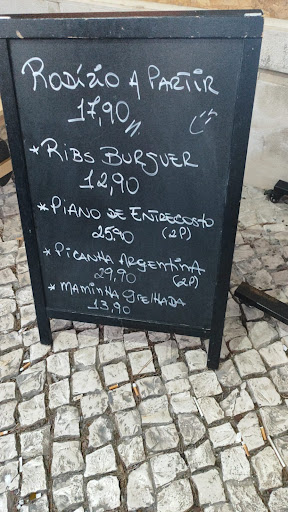 RODÍZIO A PARTIR
17,90
* RIBS BURGUER
12,90
* PIANO DE ENTRECOSTO
25,90 (2P)
* PICANHA ARGENTINA
29,90 (2P)
* MAMINHA GRELHADA
13,90